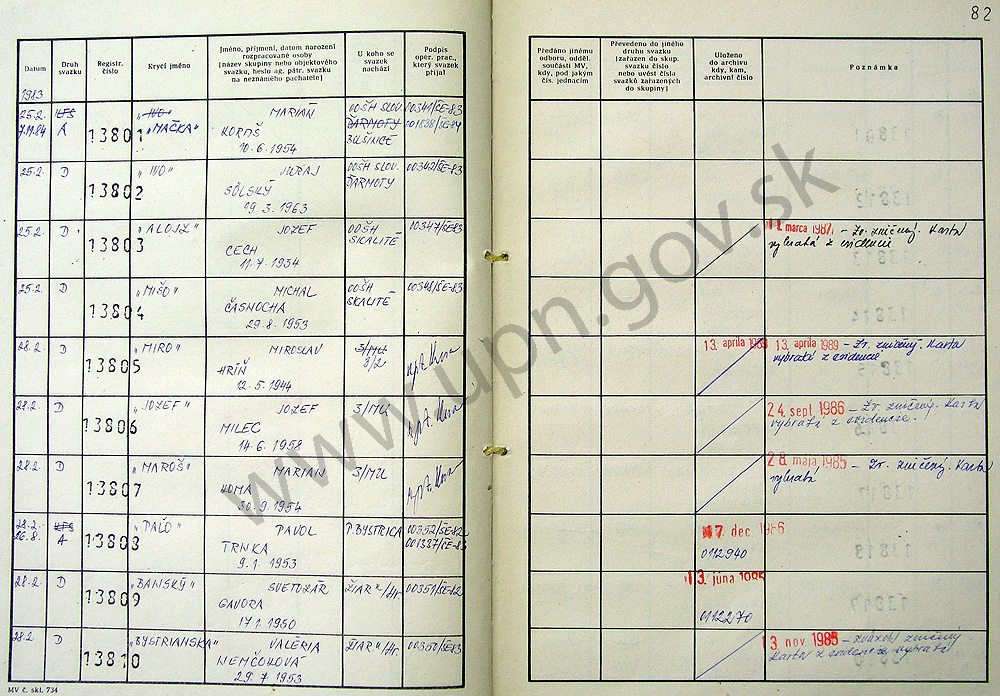 82
Datum
Druh svazku
Registr. číslo
Krycí jméno
Jméno, příjmení, datum narození rozpracované osoby (název skupiny nebo objektového svazku, heslo ag. pátr. svazku na neznámého pachatele)
U koho se svazek nachází
Podpis oper. prac., který svazek přijal
Předáno jinému odboru, odděl. součásti MV, kdy, pod jakým čís. jednacím
Převedeno do jiného druhu svazku (zařazen do skup. svazku číslo nebo uvést čísla svazků zařazených do skupiny)
Uloženo do archivu kdy, kam, archivní číslo
Poznámka
1983
25.2. KTS 13801 „IVO“ MARIAN OOŠH SLOV. 00341/ŠE-83
7.11.84 A „MAČKA“ ĎARMOTY 001838/ŠE-84
BUŠINCE
10.6.1954
25.2. D 13802 „IVO“ JURAJ OOŠH SLOV. 00342/ŠE-83
SÔLSKÝ ĎARMOTY
19.3.1963
25.2. D 13803 „ALOJZ“ JOZEF OOŠH 00347/ŠE-83
CECH SKALITÉ
11.7.1934
11. marca 1987 – Zv. zničený. Karta
vybratá z evidencie
25.2. D 13804 „MIŠO“ MICHAL OOŠH 00348/ŠE-83
ČASNOCHA SKALITÉ
29.8.1953
28.2. D 13805 „MIRO“ MIROSLAV 3/MU
HŘÍŇ 3/2
12.5.1944
13. apríla 1989 13. apríla 1989 – Zv. zničený. Karta
vybratá z evidencie
28.2. D 13806 „JOZEF“ JOZEF 3/MU
MILEC
14.6.1958
24. sept. 1986 – Zv. zničený. Karta
vybratá z evidencie.
28.2. D 13807 „MAROŠ“ MARIAN 3/MU
KOMA
30.9.1954
28. mája 1985 – Zv. zničený. Karta
vybratá
28.2. KTS 13808 „PAĽO“ PAVOL P. BYSTRICA 00352/ŠE-82
26.8. A TRNKA
9.1.1953
17. dec. 1986
0112940
28.2. D 13809 „BANSKÝ“ SVETOZÁR ŽIAR n/Hr. 00351/ŠE-82
GAVORA
17.1.1950
13. júna 1985
0112270
28.2. D 13810 „BYSTRIANSKA“ VALÉRIA ŽIAR n/Hr.
NEMČOKOVÁ
29.7.1953
13. nov. 1985 – zväzok zničený
Karta z evidencie vybratá
MV č. skl. 734
www.upn.gov.sk